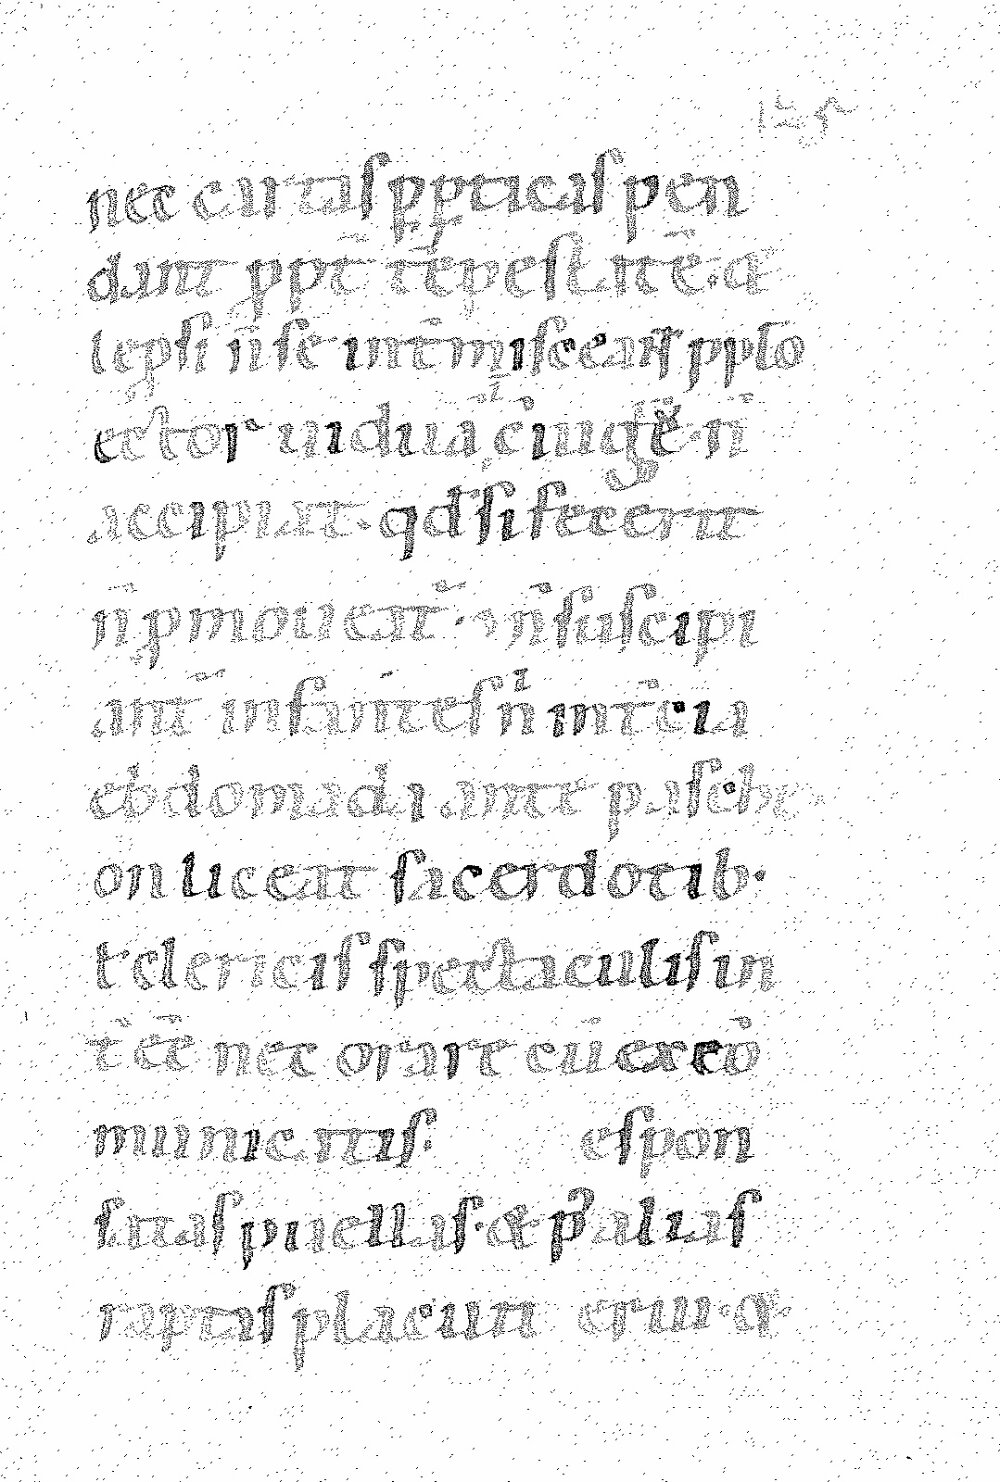 nec cartas ppticas pen
dant ppt̄ tēpestatē. &
lepsi n̄ se int̄ misceant pplo
ector uiduā
accipiat. qd si fecerit
n̄ pmoueat᷑. n̄ suscipi
ant᷑ infantes n̄ int̄
ebdomada ante pasche
on liceat sacerdotib.
t clericis spectaculis in
t̄ēē nec orare cū excō
municatis. espon
satas puellas. & p alias
raptas placuit erui. &